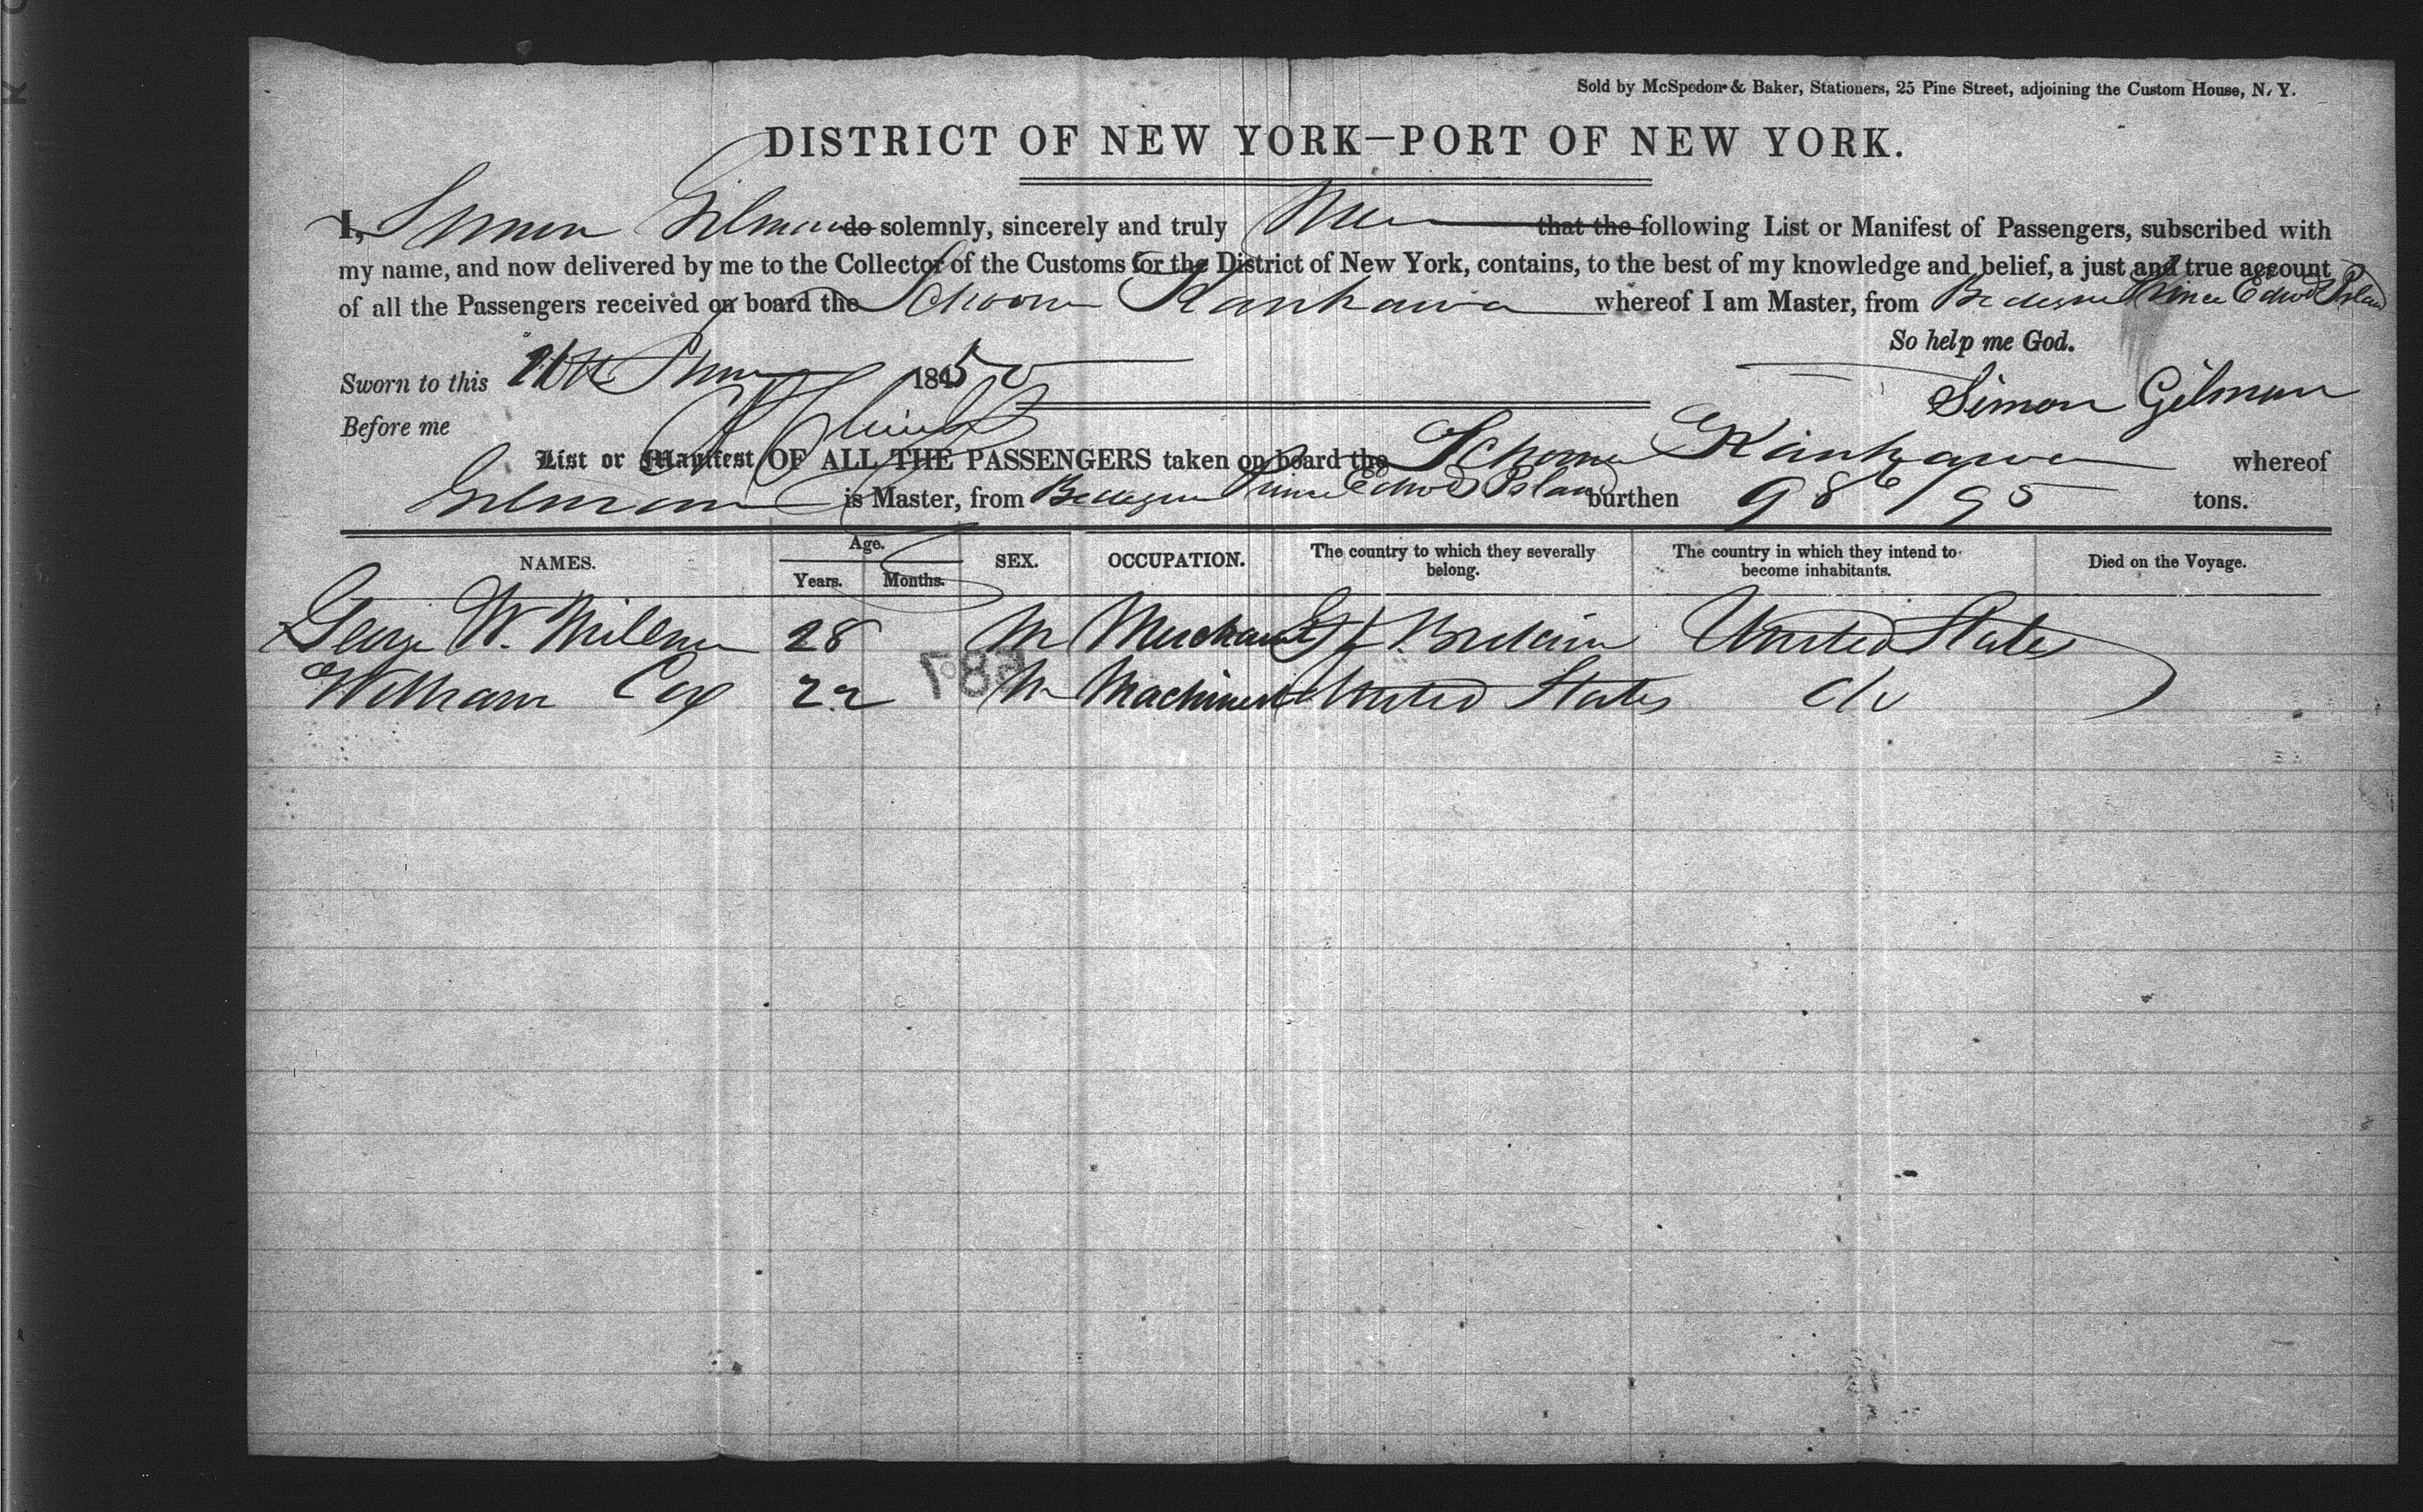 Sold by McSpedon & Baker, Stationers, 25 Pine Street, adjoining the Custom House, N. Y.
DISTRICT OF NEW YORK—PORT OF NEW YORK.
I, Simon Gilman do solemnly, sincerely and truly that the following List or Manifest of Passengers, subscribed with
my name, and now delivered by me to the Collector of the Customs for the District of New York, contains, to the best of my knowledge and belief, a just and true account
of all the Passengers received on board the Schooner Kanhawa whereof I am Master, from Bedeque Prince Edwd Island
So help me God.
Sworn to this 1850
Simon Gilman
Before me
List or Manifest OF ALL THE PASSENGERS taken on board the Schooner Kanhawa whereof
Gilman is Master, from Bedeque Prince Edwd Island burthen 98 6/95 tons.
NAMES. Age. Years. Months. SEX. OCCUPATION. The country to which they severally belong. The country in which they intend to become inhabitants. Died on the Voyage.
George W. 28 M Merchant Gt Britain United States
William Cox 22 M Machinist United States do
587